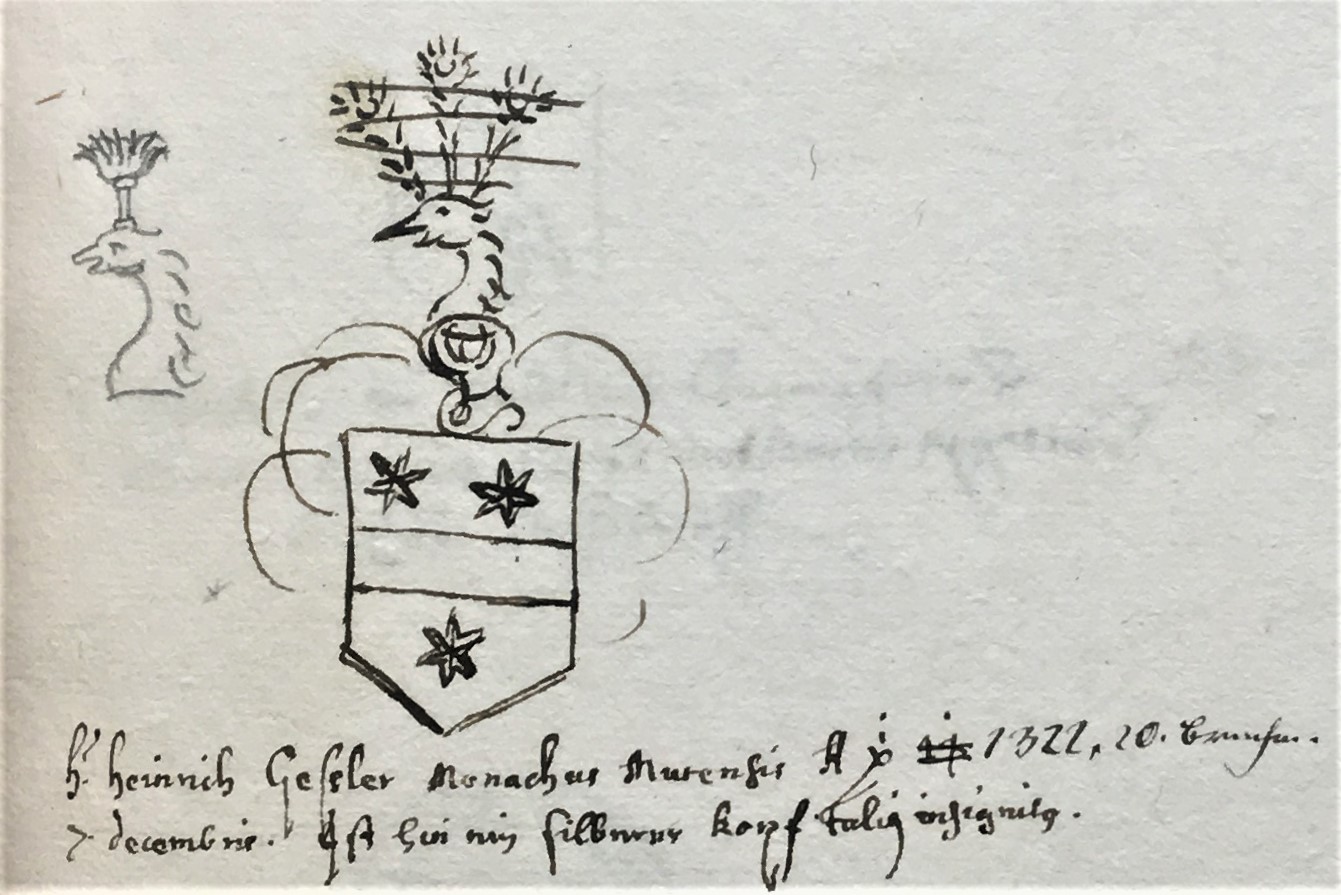 h. heinrich Gessler Monachus Murensis A 1322, 20.
7 decembris. Ist silberner kopf talig insignitg.